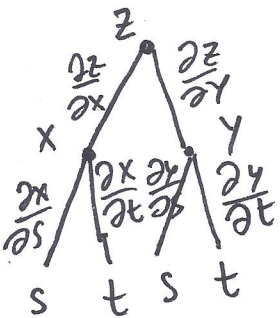 z
∂z/∂x ∂z/∂y
x y
∂x/∂s ∂x/∂t ∂y/∂s ∂y/∂t
s t s t